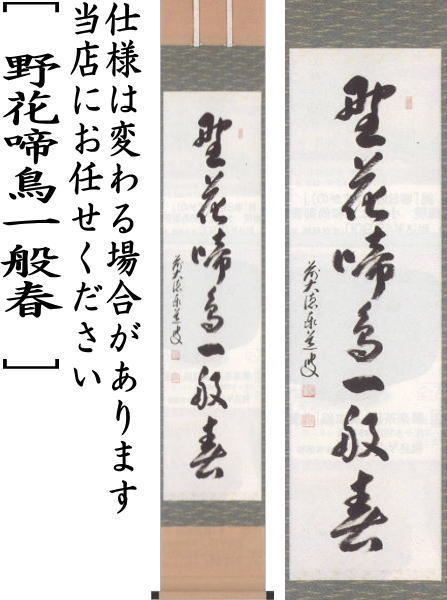 野花啼鳥一般春
野花啼鳥一般春
仕様は変わる場合があります
当店にお任せください
[野花啼鳥一般春]